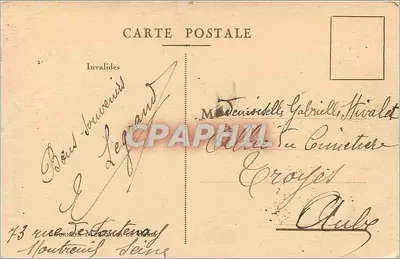 CARTE POSTALE
Invalides
Bons souvenirs
E Legrand
CPAPHIL
73 rue de
Montreuil Seine
Mademoiselle Gabrielle
du Cimetière
Troyes
Aube